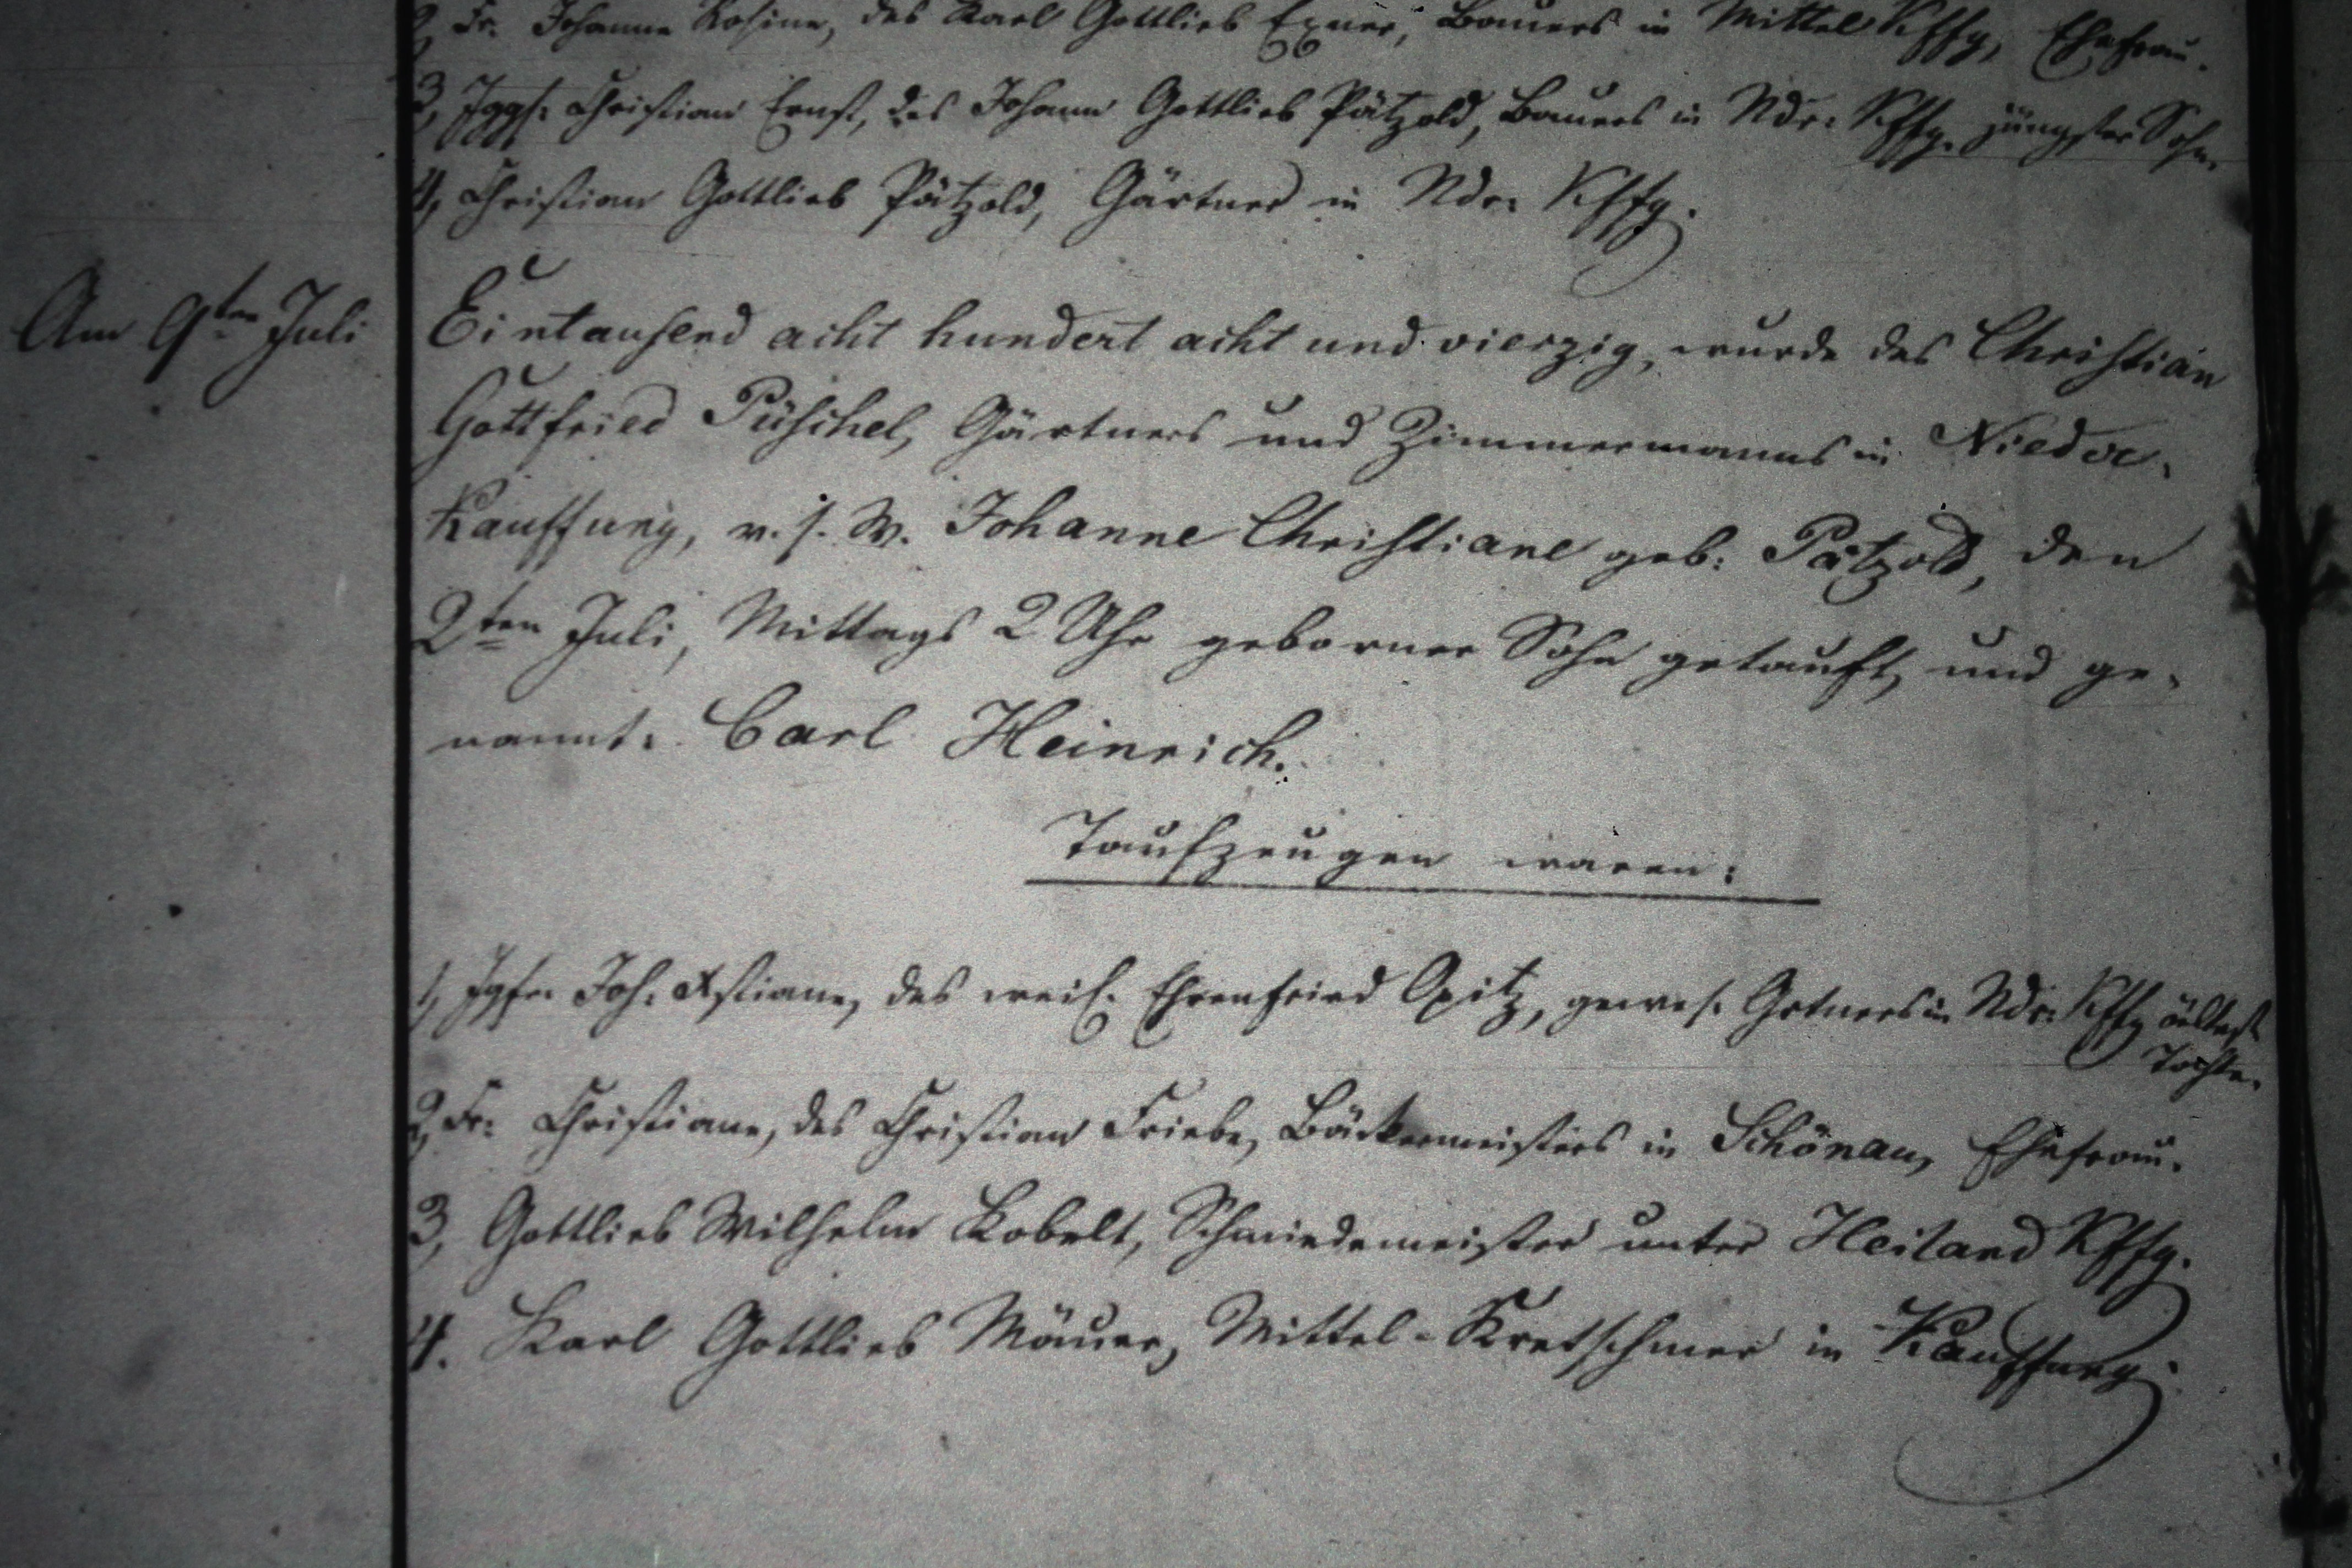 2, Fr. Johanne Rosine, des Karl Gottlieb Exner, Bauers in Mittel Kffg, Ehefrau.
3, Jggs. Christian Ernst, des Johann Gottlieb Pätzold, Bauers in Ndr. Kffg. jüngster Sohn.
4, Christian Gottlieb Pätzold, Gärtner in Ndr. Kffg.
Am 9ten Juli Eintausend acht hundert acht und vierzig, wurde des Christian
Gottfried Püschel, Gärtners und Zimmermanns in Nieder-
Kauffung, v. s. W. Johanne Christiane geb: Pätzold, den
2ten Juli, Mittags 2 Uhr geborner Sohn getauft, und ge-
nannt: Carl Heinrich.
Taufzeugen waren:
1, Jgfr. Joh. Xstiane, des weil. Ehrenfried Opitz, gewes. Grtners in Ndr. Kffg ältest
Tochter.
2, Fr. Christiane, des Christian Friebe, Bäckermeisters in Schönau, Ehefrau.
3, Gottlieb Wilhelm Kobelt, Schmiedemeister unter Heiland Kffg.
4. Karl Gottlieb Mäuer, Mittel-Kretschmer in Kauffung.